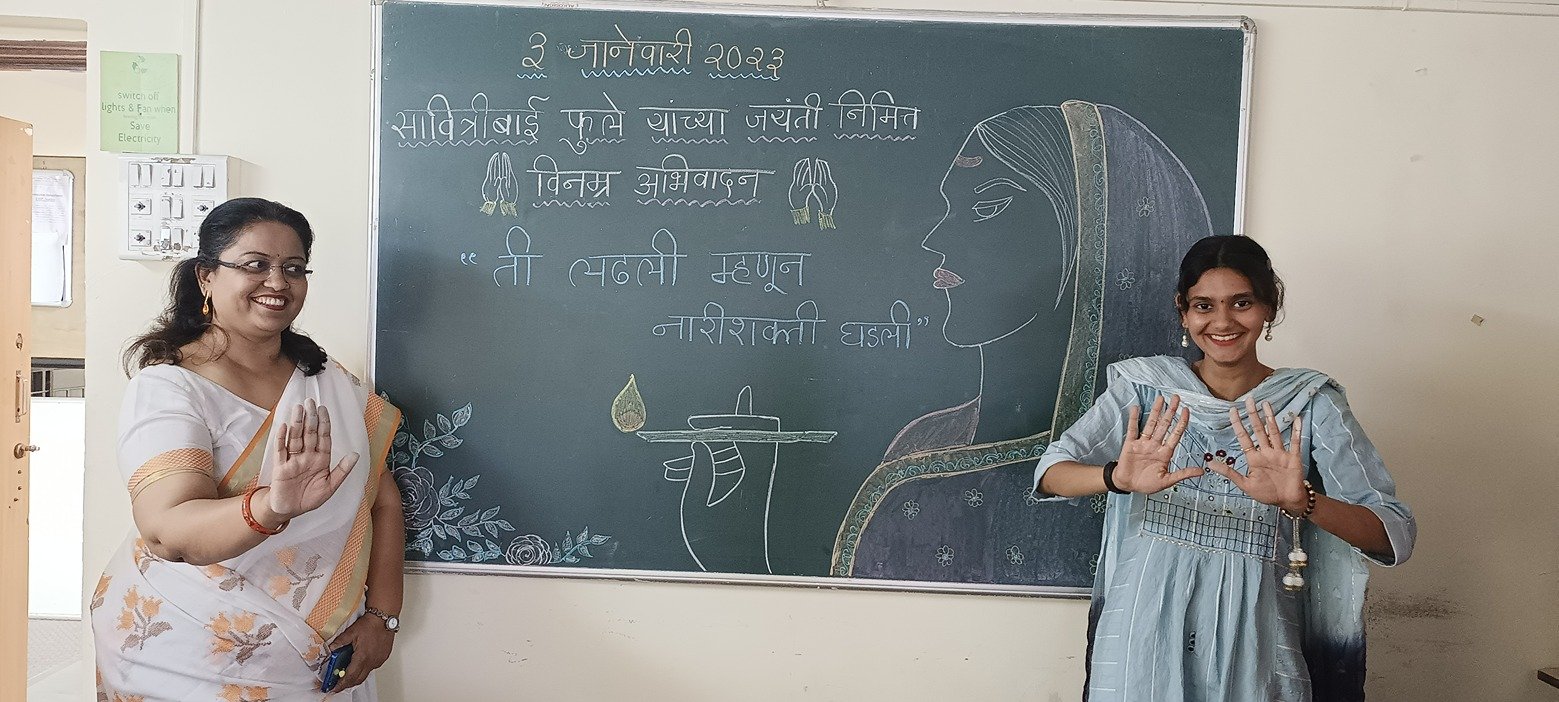 switch off
lights & Fan when
Save
Electricity
३ जानेवारी २०२३
सावित्रीबाई फुले यांच्या जयंती निमित्त
विनम्र अभिवादन
“ ती लढली म्हणून
नारीशक्ती घडली”